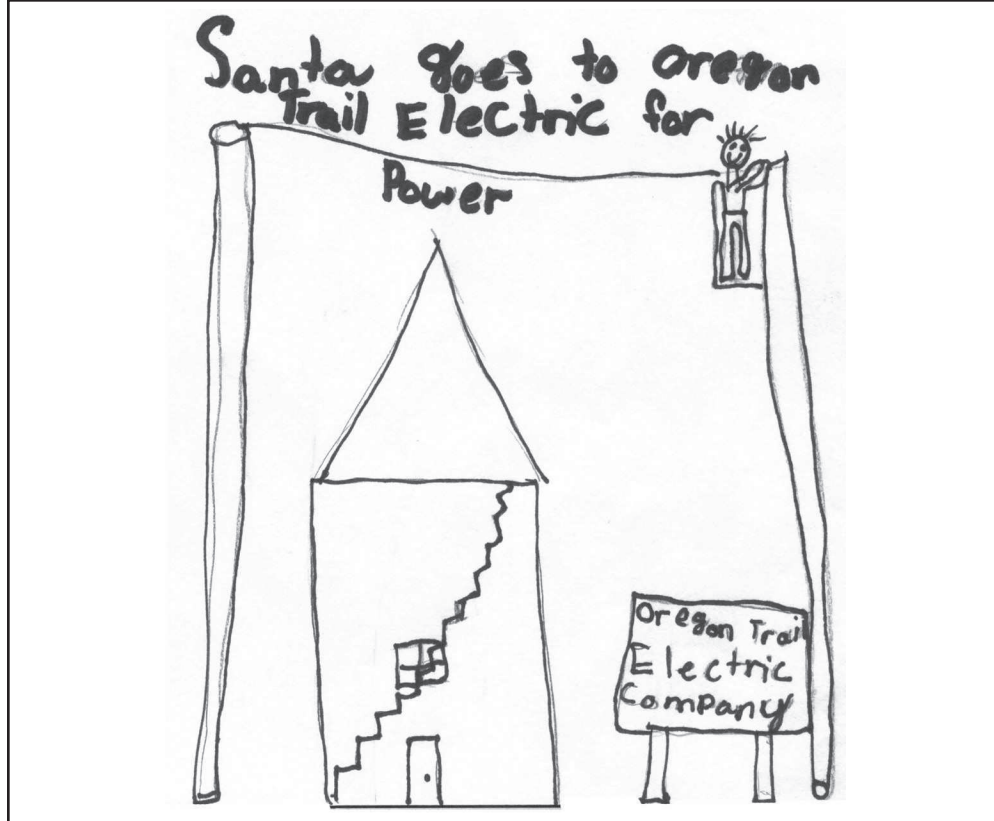 Santa goes to oregon
Trail Electric for
Power
Oregon Trail
Electric
Company